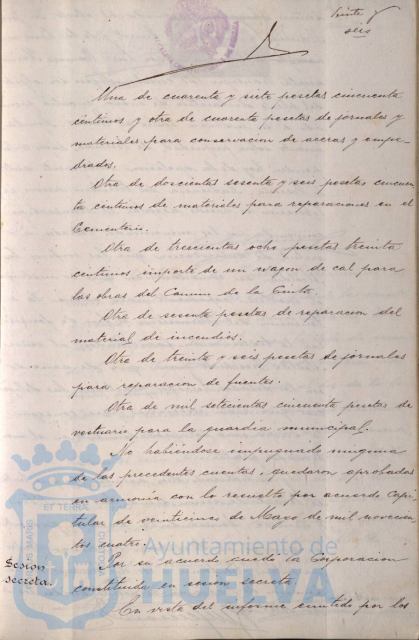 Veinte y
seis
Una de cuarenta y siete pesetas cincuenta
centimos y otra de cuarenta pesetas de jornales y
materiales para conservacion de aceras y empe-
drados.
Otra de doscientas sesenta y seis pesetas cincuen
ta centimos de materiales para reparaciones en el
Cementerio.
Otra de trescientas ocho pesetas treinta
centimos importe de un wagon de cal para
las obras del Camino de la Cinta.
Otra de sesenta pesetas de reparacion del
material de incendios.
Otra de treinta y seis pesetas de jornales
para reparacion de fuentes.
Otra de mil setecientas cincuenta pesetas de
vestuario para la guardia municipal.
No habiéndose impugnado ninguna
de las precedentes cuentas, quedaron aprobadas
en armonia con lo resuelto por acuerdo Capi
tular de veinticinco de Mayo de mil novecien
tos cuatro.
Sesion
secreta.
Por su acuerdo quedó la Corporacion
constituida en sesion secreta
En vista del informe emitido por los
Ayuntamiento de
HUELVA